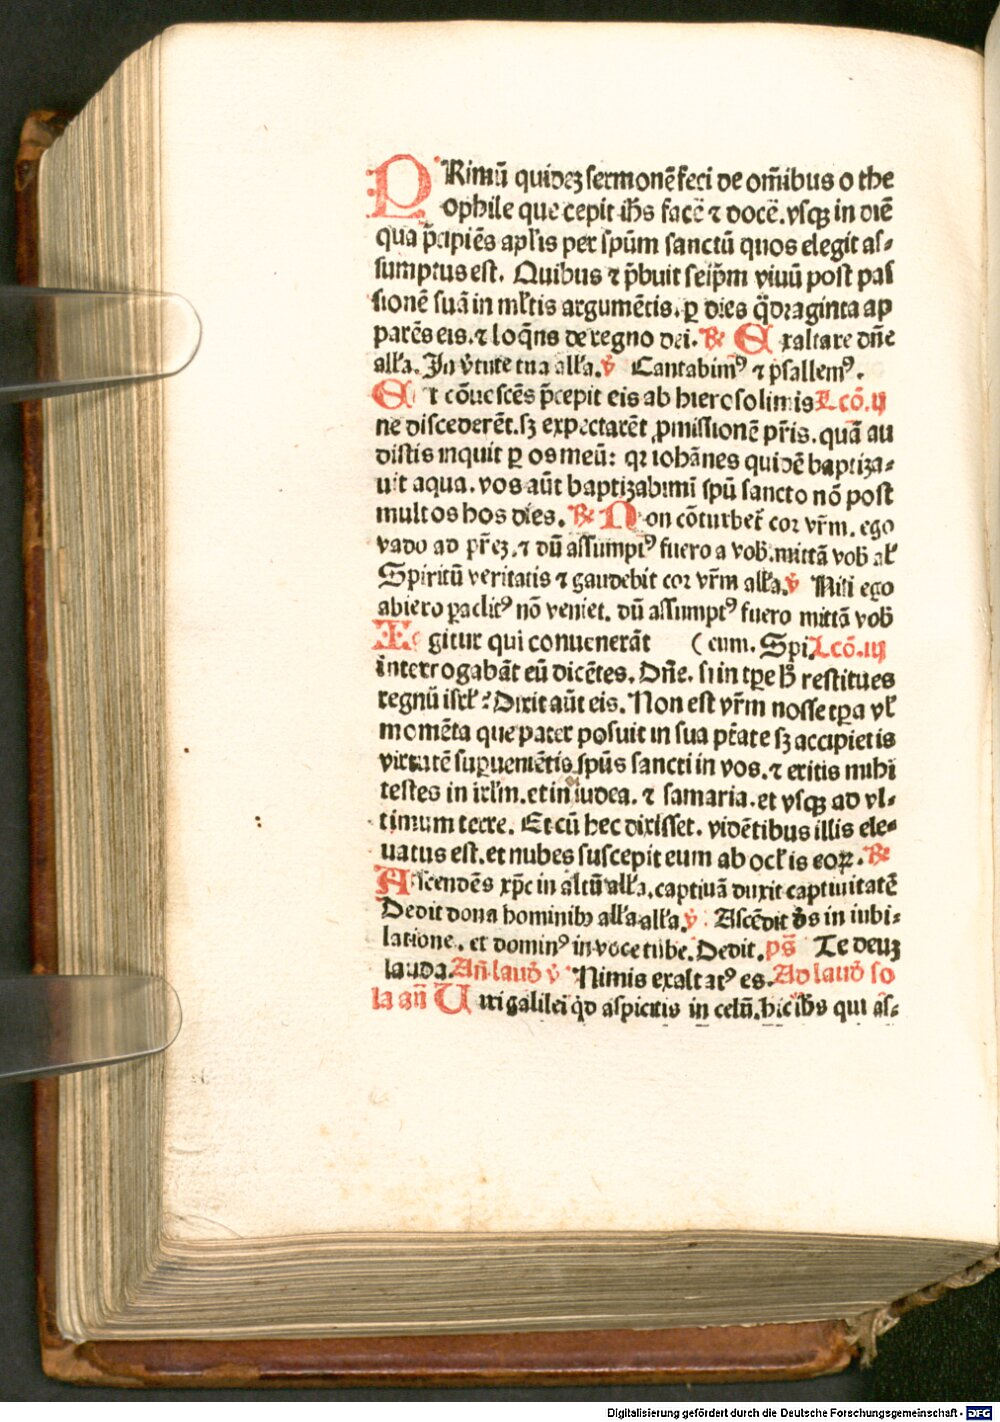 PRimū quidez sermonē feci de om̄ibus o the
ophile que cepit ihs̄ facē ⁊ docē. vsqȝ in diē
qua p̄cipiēs apl'is per spūm sanctū quos elegit as⸗
sumptus est. Quibus ⁊ p̄buit seip̄m viuū post pas
sionē suā in ml'tis argumētis. ꝑ dies q̄draginta ap
parēs eis. ⁊ loq̄ns de regno dei. ℟ Exaltare dn̄e
all'a. In v̄tute tua all'a. ℣ Cantabimꝰ ⁊ p̄sallemꝰ.
Et cōuescēs p̄cepit eis ab hierosolimis Lcō. ij
ne discederēt. sȝ expectarēt ꝓmissionē pr̄is. quā au
distis inquit ꝑ os meū: qꝛ iohānes quidē baptiza⸗
uit aqua. vos aūt baptizabimī spū sancto nō post
multos hos dies. ℟ Non cōturbet̄ cor vr̄m. ego
vado ad pr̄ez. ⁊ dū assumptꝰ fuero a vob̄. mittā vob̄ al'
Spiritū veritatis ⁊ gaudebit cor vr̄m all'a. ℣ Nisi ego
abiero ꝑaclitꝰ nō veniet. dū assumptꝰ fuero mittā vob̄
Igitur qui conuenerāt (cum. Spi. Lcō. iij
interrogabāt eū dicētes. Dn̄e. si in tꝑe h̄ restitues
regnū isrl'? Dixit aūt eis. Non est vr̄m nosse tꝑa vl'
momēta que pater posuit in sua pt̄ate sȝ accipietis
virtutē suꝑuenietis spūs sancti in vos. ⁊ eritis mihi
testes in irl'm. et in iudea. ⁊ samaria. et vsqȝ ad vl⸗
timum terre. Et cū hec dixisset. vidētibus illis ele⸗
uatus est. et nubes suscepit eum ab ocl'is eoꝝ. ℟
Ascendēs xp̄c in altū all'a. captiuā duxit captiuitatē
Dedit dona hominibȝ all'a all'a. ℣ Ascēdit ds̄ in iubi⸗
latione. et dominꝰ in voce tube. Dedit. ps̄ Te deuȝ
lauda. Añ laud̄ ℣ Nimis exaltatꝰ es. Ad laud̄ so
la an̄ Uiri galilei qd̄ aspicitis in celū. hic ihs̄ qui as⸗
Digitalisierung gefördert durch die Deutsche Forschungsgemeinschaft - DFG